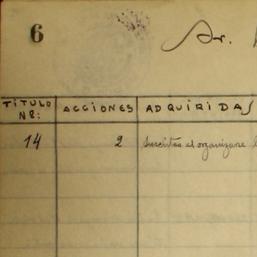 6 Sr.
TITULO ACCIONES ADQUIRIDAS
Nº:
14 2 Suscritas al organizarse